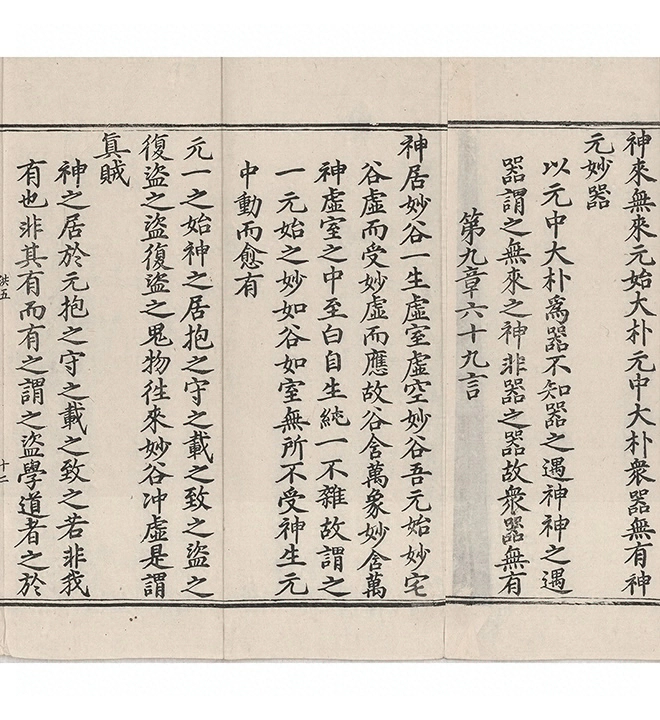 神來無來元始大朴元中大朴衆器無有神
元妙器
以元中大朴爲器不知器之遇神神之遇
器謂之無來之神非器之器故衆器無有
第九章六十九言
神居妙谷一生虛室虛空妙谷吾元始妙宅
谷虛而受妙虛而應故谷含萬象妙含萬
神虛室之中至白自生純一不雜故謂之
一元始之妙如谷如室無所不受神生元
中動而愈有
元一之始神之居抱之守之載之致之盜之
復盜之盜復盜之鬼物徃來妙谷冲虛是謂
眞賊
神之居於元抱之守之載之致之若非我
有也非其有而有之謂之盜學道者之於
洪五
十二